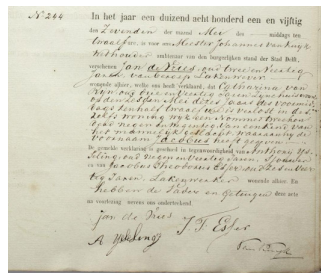 No 244
In het jaar een duizend acht honderd een en vijftig
den Zevenden der maand Mei des middags ten
twaalf ure, is voor ons Meester Johannes van Kuyk
Wethouder ambtenaar van den burgerlijken stand der Stad Delft,
verschenen Jan de Vries, oud twee en veertig
Jaren van beroep Lakenwever
wonende alhier, welke ons heeft verklaard, dat Catharina van
Ryn, oud een en veertig Jaren, Zyne huisvrouw
op den Zesden Mei dezes Jaars des voormid-
dags ten half twaalf ure is verlost in het
Zelfs woning wyk een Nommer twee honderd
acht negen en twintig van een kind van
het mannelyk geslacht, waaraan hy de
voornaam Jacobus heeft gegeven
De gemelde verklaring is geschied in tegenwoordigheid van Anthony Ys-
seling, oud negen en veertig Jaren,
en van Jacobus Theodorus Esser, oud
tig Jaren, Lakenwerker wonende alhier. En
hebben de Vader en Getuigen deze acte
na voorlezing nevens ons onderteekend.
Jan de Vries J T Esser
A Ysseling
Van Kuyk